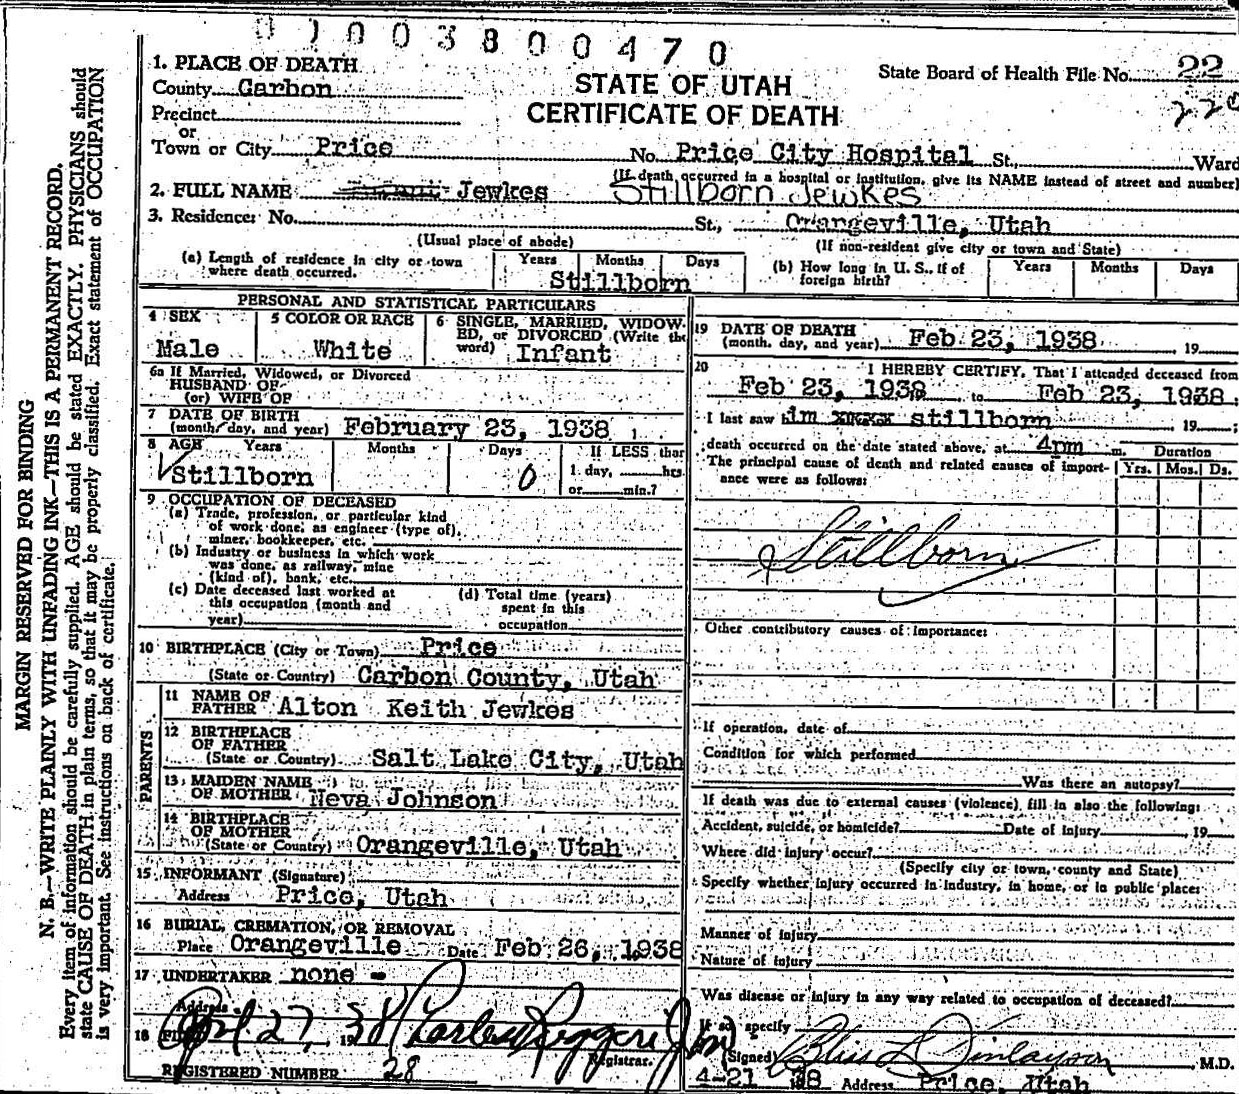 01003800470
1. PLACE OF DEATH
County Carbon
Precinct
or
Town or City Price
STATE OF UTAH
CERTIFICATE OF DEATH
State Board of Health File No. 22
220
No. Price City Hospital St., Ward
(If death occurred in a hospital or institution, give its NAME instead of street and number)
2. FULL NAME Jewkes Stillborn Jewkes
3. Residence: No. St., Orangeville, Utah
(Usual place of abode) (If non-resident give city or town and State)
(a) Length of residence in city or town where death occurred. Years Months Days
Stillborn
(b) How long in U. S., if of foreign birth? Years Months Days
PERSONAL AND STATISTICAL PARTICULARS
4 SEX
Male
5 COLOR OR RACE
White
6 SINGLE, MARRIED, WIDOW-
ED, or DIVORCED (Write the
word) Infant
6a If Married, Widowed, or Divorced
HUSBAND OF
(or) WIFE OF
7 DATE OF BIRTH
(month, day, and year) February 23, 1938
8 AGE Years Months Days If LESS than
Stillborn 0 1 day, hrs.
or min.?
9 OCCUPATION OF DECEASED
(a) Trade, profession, or particular kind
of work done, as engineer (type of),
miner, bookkeeper, etc.
(b) Industry or business in which work
was done, as railway, mine
(kind of), bank, etc.
(c) Date deceased last worked at
this occupation (month and
year)
(d) Total time (years)
spent in this
occupation
10 BIRTHPLACE (City or Town) Price
(State or Country) Carbon County, Utah
PARENTS
11 NAME OF
FATHER Alton Keith Jewkes
12 BIRTHPLACE
OF FATHER
(State or Country) Salt Lake City, Utah
13 MAIDEN NAME
OF MOTHER Neva Johnson
14 BIRTHPLACE
OF MOTHER
(State or Country) Orangeville, Utah
15 INFORMANT (Signature)
Address Price, Utah
16 BURIAL, CREMATION, OR REMOVAL
Place Orangeville Date Feb 26, 1938
17 UNDERTAKER none -
Address
18 FILED April 27, 1938 Charles Ruggeri Jr
Registrar.
REGISTERED NUMBER 28
19 DATE OF DEATH
(month, day, and year) Feb 23, 1938, 19
20 I HEREBY CERTIFY, That I attended deceased from
Feb 23, 1938 to Feb 23, 1938;
I last saw him stillborn 19 ;
death occurred on the date stated above, at 4pm m.
Duration
The principal cause of death and related causes of import-
ance were as follows:
Yrs. Mos. Ds.
Stillborn
Other contributory causes of importance:
If operation, date of
Condition for which performed
Was there an autopsy?
If death was due to external causes (violence) fill in also the following:
Accident, suicide, or homicide? Date of injury , 19
Where did injury occur?
(Specify city or town, county and State)
Specify whether injury occurred in industry, in home, or in public place:
Manner of injury
Nature of injury
Was disease or injury in any way related to occupation of deceased?
If so, specify
(Signed) Bliss L Finlayson M.D.
4-21 38 Address Price, Utah
MARGIN RESERVED FOR BINDING
N. B.—WRITE PLAINLY WITH UNFADING INK—THIS IS A PERMANENT RECORD.
Every item of information should be carefully supplied. AGE should be stated EXACTLY. PHYSICIANS should
state CAUSE OF DEATH in plain terms, so that it may be properly classified. Exact statement of OCCUPATION
is very important. See instructions on back of certificate.